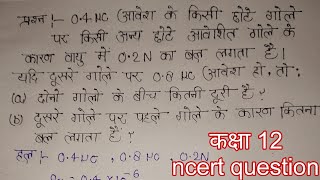 प्रश्न :- 0.4 μC (आवेश के किसी छोटे गोले
पर किसी अन्य छोटे आवेशित गोले के
कारण वायु में 0.2N का बल लगता है।
यदि दूसरे गोले पर 0.8 μC (आवेश हो, तो:
(a) दोनों गोलों के बीच कितनी दूरी है?
(b) दूसरे गोले पर पहले गोले के कारण कितना
बल लगता है?
हल :- 0.4 μC , 0.8 μC , 0.2N
कक्षा 12
ncert question